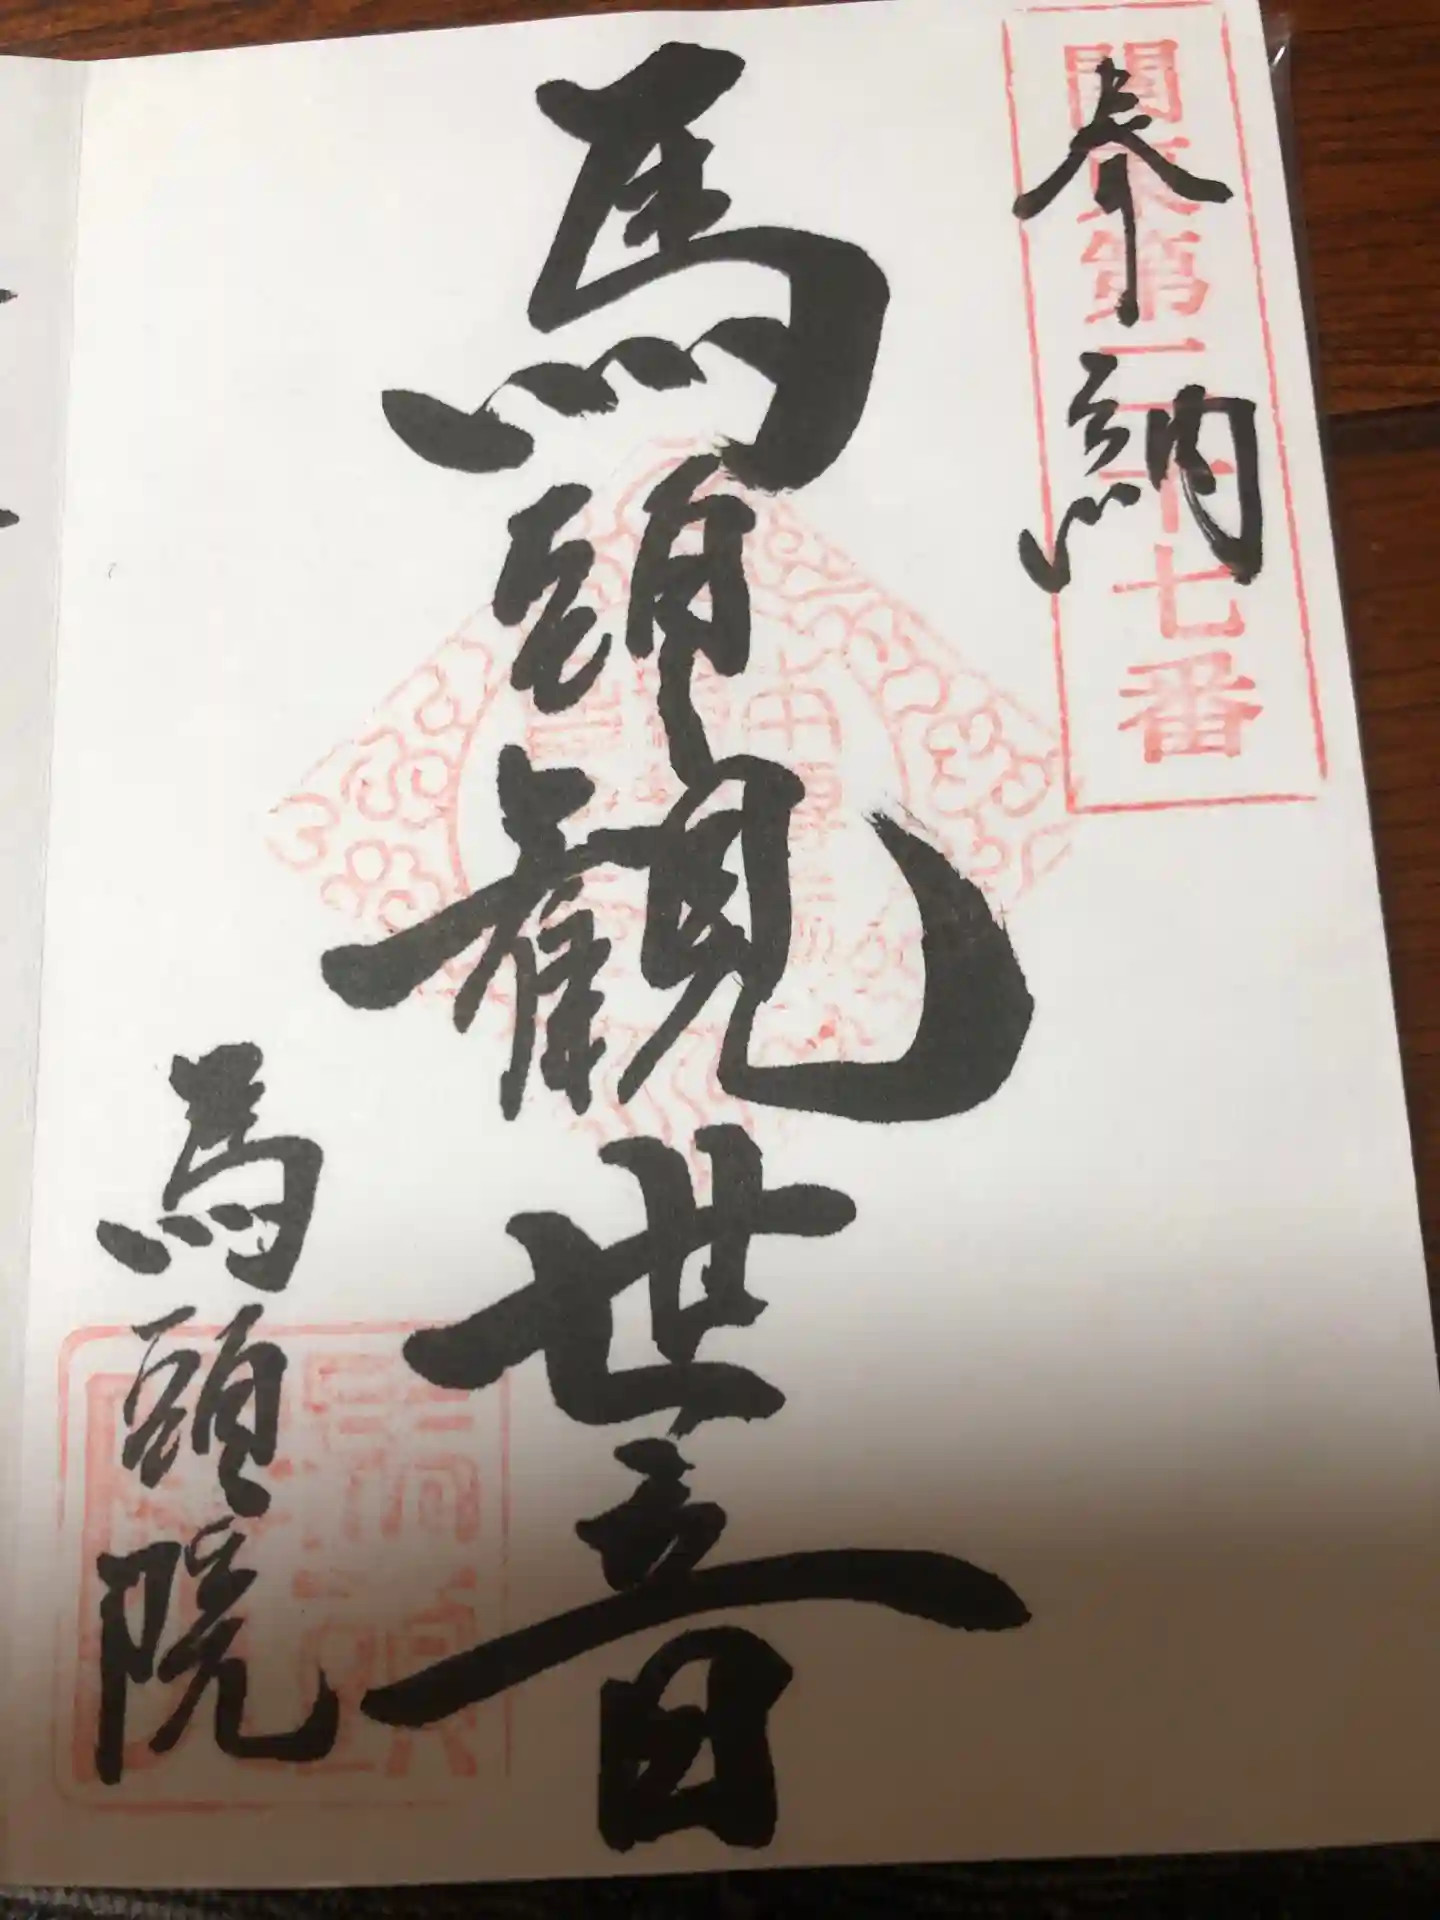 奉納
関東第二十七番
馬頭観世音
馬頭院